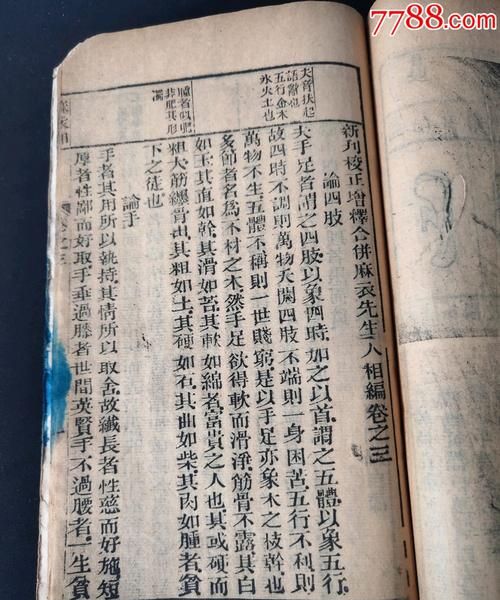 7788.com
夫音扶起
語辭也
五行金木
水火土也
腫者似肥
非肥其形
濁
新刊校正增釋合併麻衣先生人相編卷之三
論四肢
夫手足者謂之四肢以象四時加之以首謂之五體以象五行
故四時不調則萬物夭閼四肢不端則一身困苦五行不利則
萬物不生五體不稱則一世賤窮是以手足亦象木之枝幹也
多節者名為不材之木然手足欲得軟而滑淨筋骨不露其白
如玉其直如幹其滑如苔其軟如綿者富貴之人也其或硬而
粗大筋纏骨出其粗如土其硬如石其曲如柴其肉如腫者貧
下之徒也
論手
手者其用所以執持其情所以取舍故纖長者性慈而好施短
厚者性鄙而好取手垂過膝者世間英賢手不過腰者一生貧
卷之三